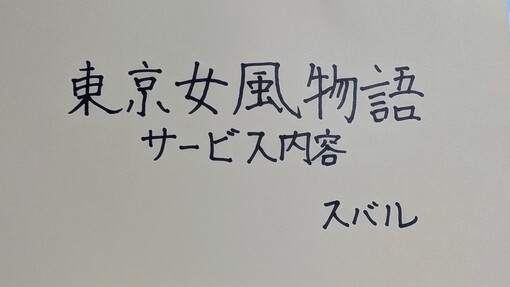 東京女風物語
サービス内容
スバル